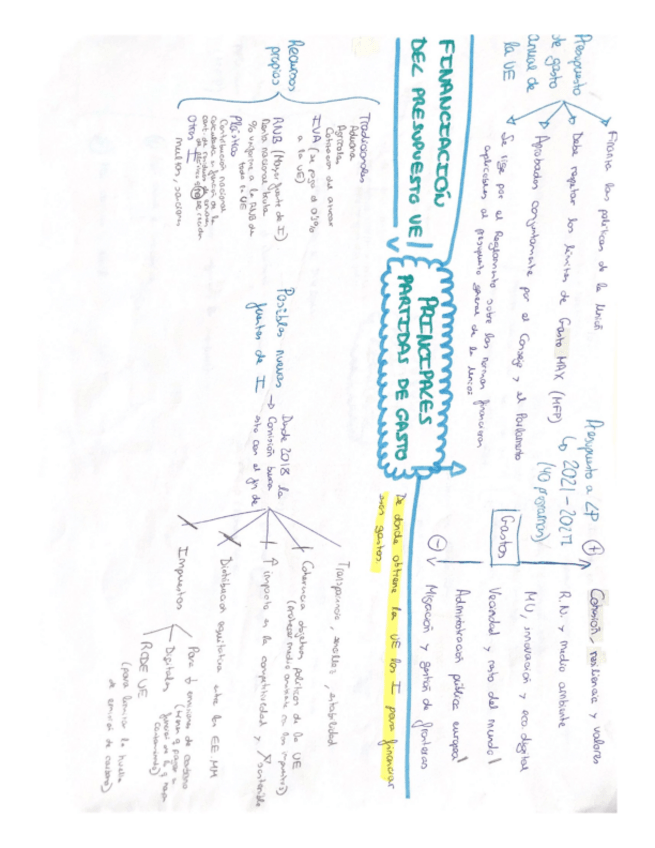 FINANCIACIÓN
DEL PRESUPUESTO UE
PRINCIPALES
PARTIDAS DE GASTO
Presupuesto
de gasto
anual de
la UE
Financia las políticas de la Unión
Debe respetar los límites de Gasto MAX (MFP)
Aprobados conjuntamente por el Consejo y el Parlamento
Se rige por el Reglamento sobre las normas financieras
aplicables al presupuesto general de la Unión
Presupuesto a LP
↳ 2021-2027
(40 programas)
Gastos
+
Cohesión, resiliencia y valores
R.N y medio ambiente
MU, innovación y eco digital
Vecindad y resto del mundo
Administración pública europea
Migración y gestión de fronteras
-
De donde obtiene la UE los I para financiar
esos gastos
Recursos
propios
Tradicionales
Aduana
Agrícolas
Cotización del azucar
IVA (se paga el 0'3%
a la UE)
RNB (Mayor fuente de I)
Renta nacional bruta
% uniforme a la RNB de
toda la UE
Plástico
Contribución nacional
calculada en función de la
cant. de residuos de envases
de plástico que no se reciclan
Otros I
multas, sanciones
Posibles nuevas
fuentes de I
→ Desde 2018 la
Comisión busca
esto con el fin de
Transparencia, sencillez, estabilidad
Coherencia objetivos políticos de la UE
(proteger medio ambiente con los impuestos)
↑ impacto en la competitividad y sostenible
Distribución equitativa entre los EE.MM
Impuestos
Digitales
RCDE UE
(para limitar la huella
de emisión de carbono)